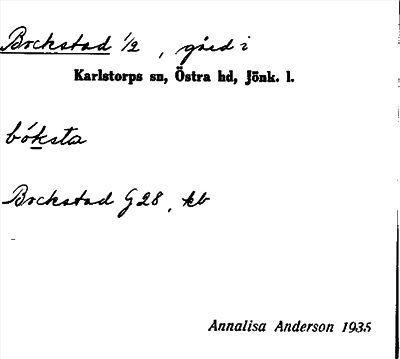 Bockstad 1/2, gård i
Karlstorps sn, Östra hd, Jönk. l.
bóksta
Bockstad G28, kb
Annalisa Anderson 1935